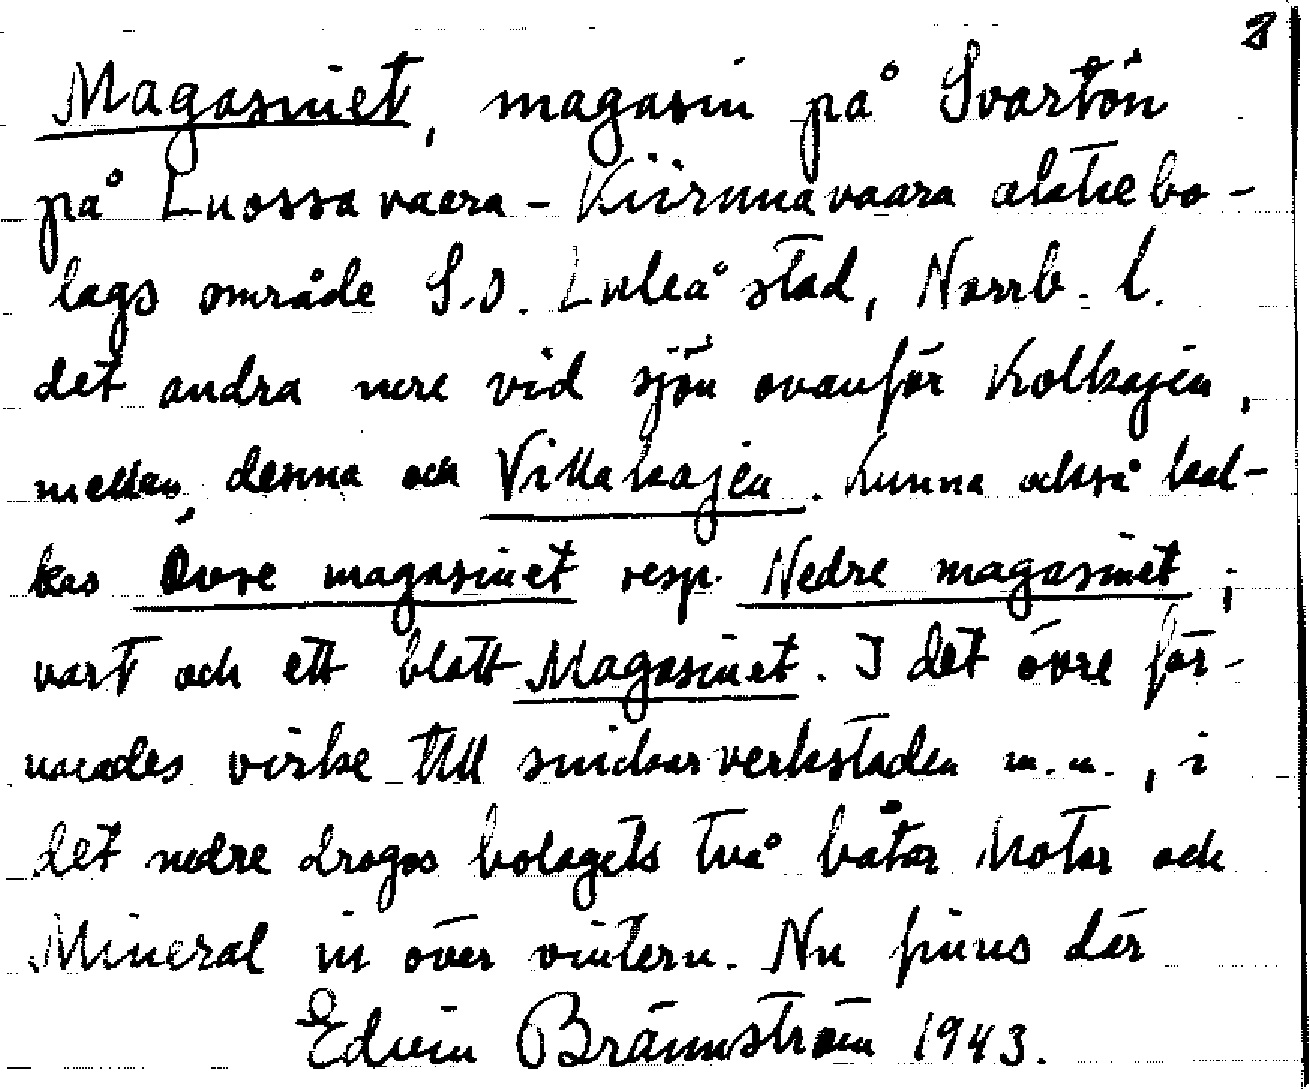 2
Magasinet, magasin på Svartön
på Luossavaara-Kiirunavaara aktiebo-
lags område S.O. Luleå stad, Norrb. l.
det andra nere vid sjön ovanför Kolkajen,
mellan denna och Villakajen. Kunna också kal-
las Övre magasinet resp. Nedre magasinet;
vart och ett blott Magasinet. I det övre för-
varades virke till snickarverkstaden m.m., i
det nedre drogos bolagets två båtar Motor och
Mineral in över vintern. Nu finns där
Edvin Brännström 1943.